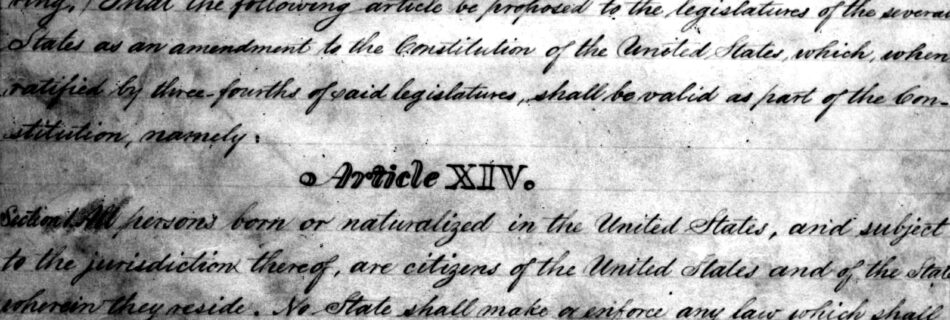 ring,) That the following article be proposed to the legislatures of the several
States as an amendment to the Constitution of the United States, which, when
ratified by three-fourths of said legislatures, shall be valid as part of the Con-
stitution, namely:
Article XIV.
Section 1. All persons born or naturalized in the United States, and subject
to the jurisdiction thereof, are citizens of the United States and of the State
wherein they reside. No State shall make or enforce any law which shall